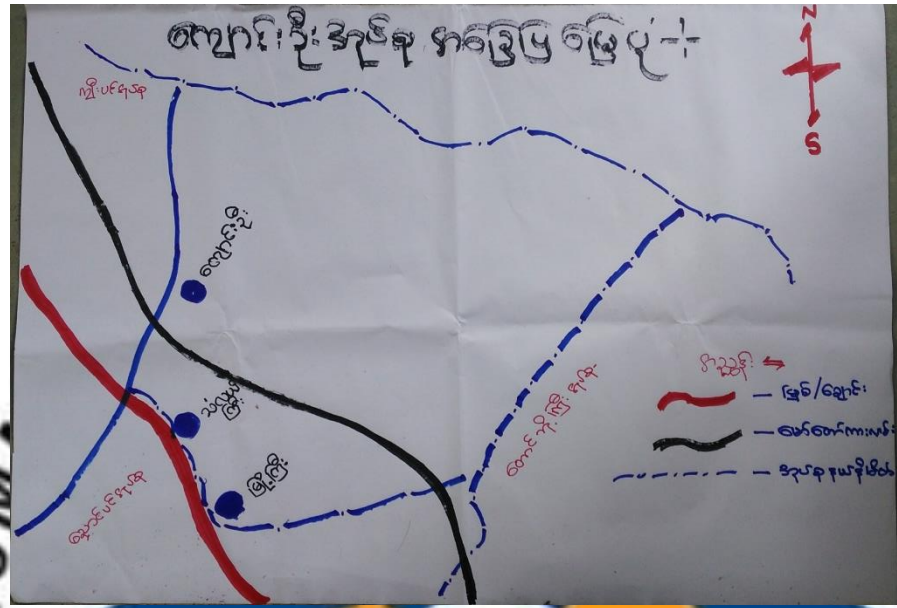 ကျောင်းဦးအုပ်စု အခြေပြ မြေပုံ
N
S
ကျီးပင်အုပ်စု
ကျောင်းဦး
မြို့ကြီး
ညောင်ပင်အုပ်စု
တောင်သို့ကြီးအုပ်စု
အညွှန်း
မြစ်/ချောင်း
မော်တော်ကားလမ်း
အုပ်စုနယ်နိမိတ်